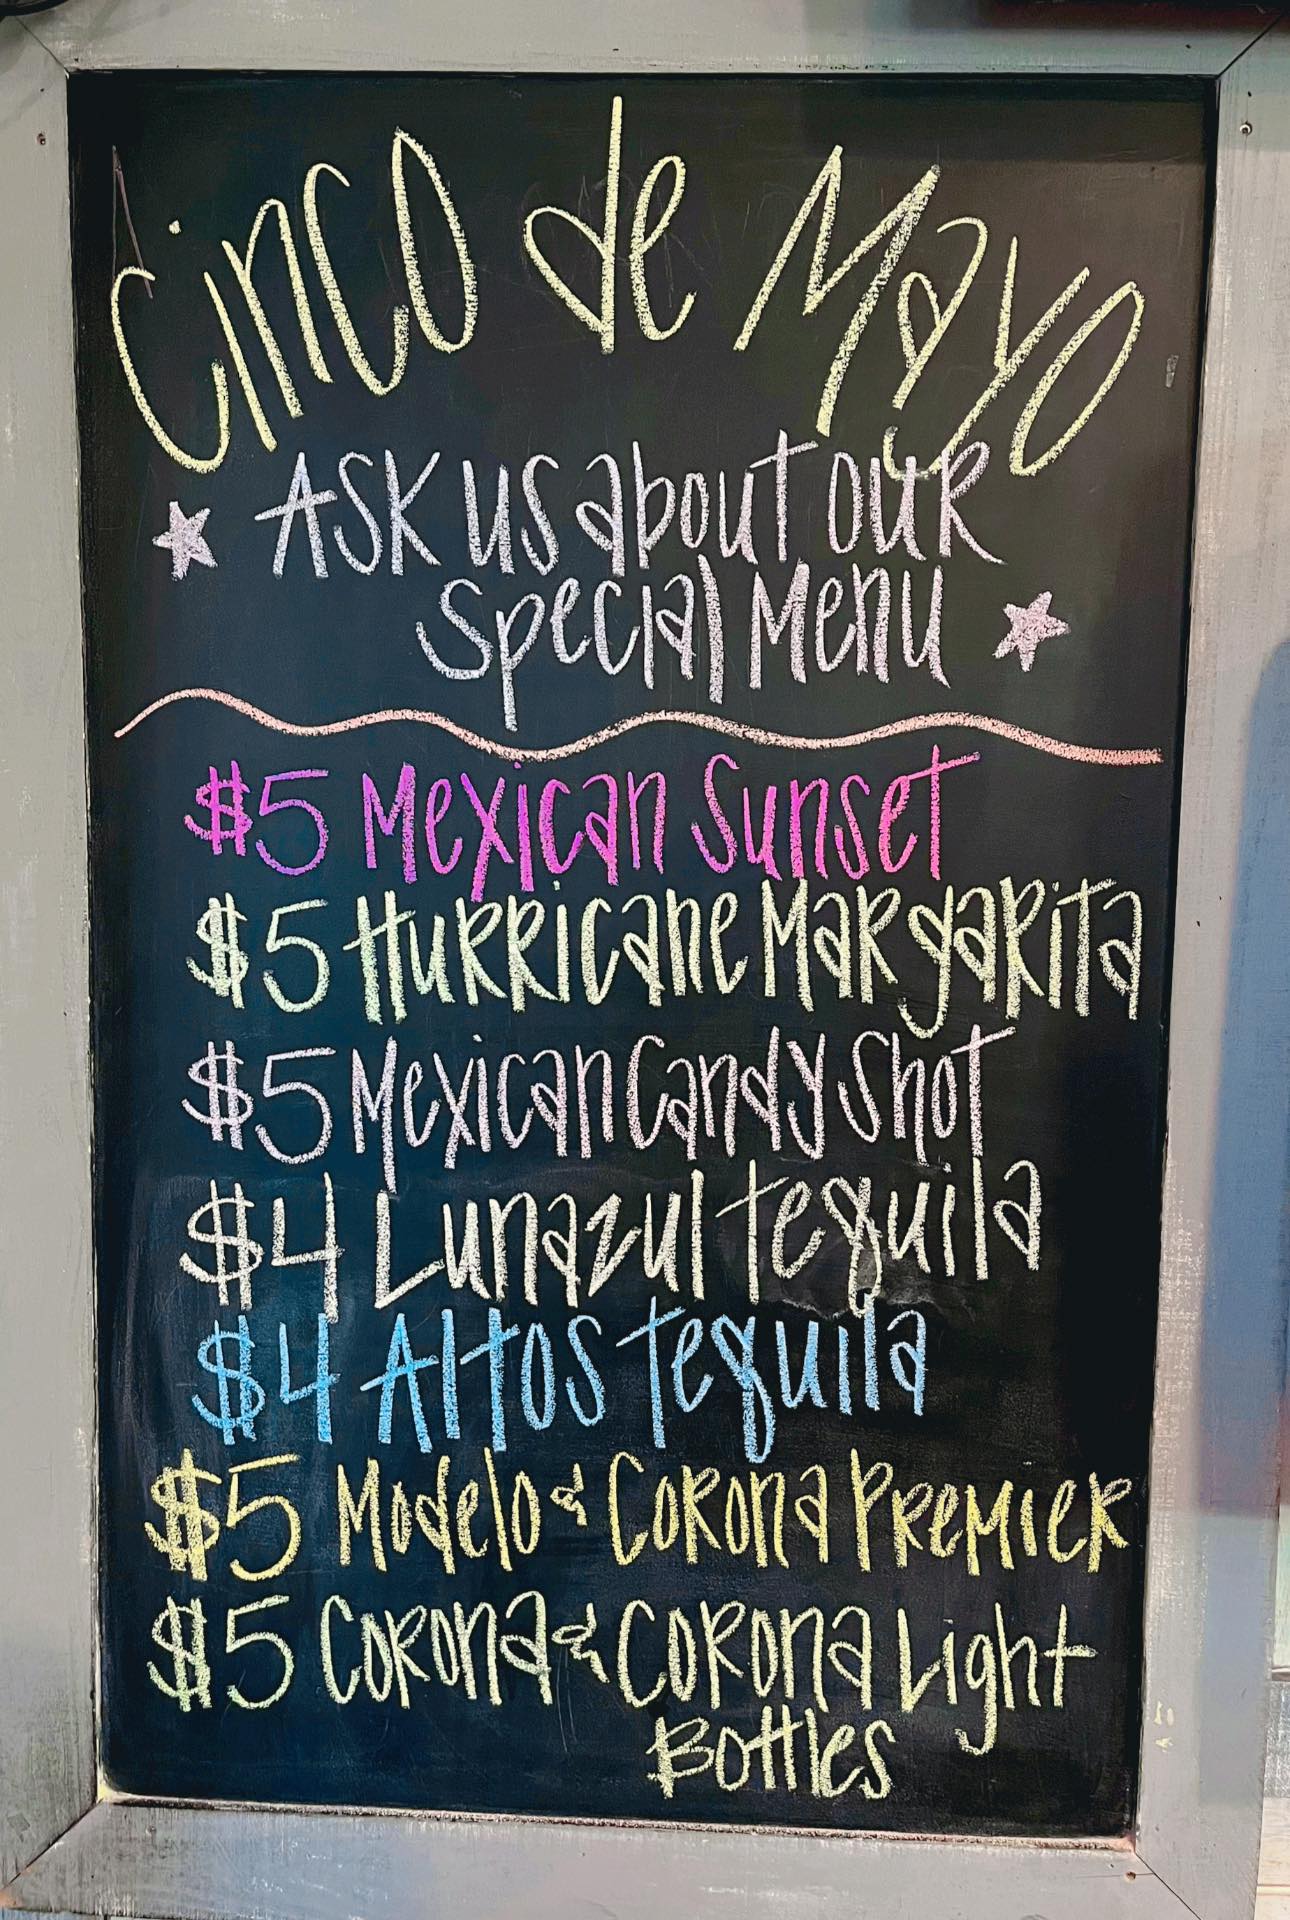 Cinco de Mayo
Ask us about our
Special Menu
$5 Mexican Sunset
$5 Hurricane Margarita
$5 Mexican Candy Shot
$4 Lunazul Tequila
$4 Altos Tequila
$5 Modelo & Corona Premier
$5 Corona & Corona Light
Bottles